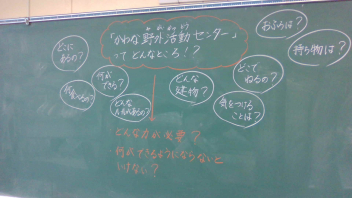 「かわな野外活動センター」
や がいかつどう
って どんなところ!?
どこに
あるの?
何が
できる?
どんな
どんな
建物?
どこで
ねるの?
気をつける
ことは?
おふろは?
持ち物は?
どんな力が必要?
何ができるようにならないと
いけない?